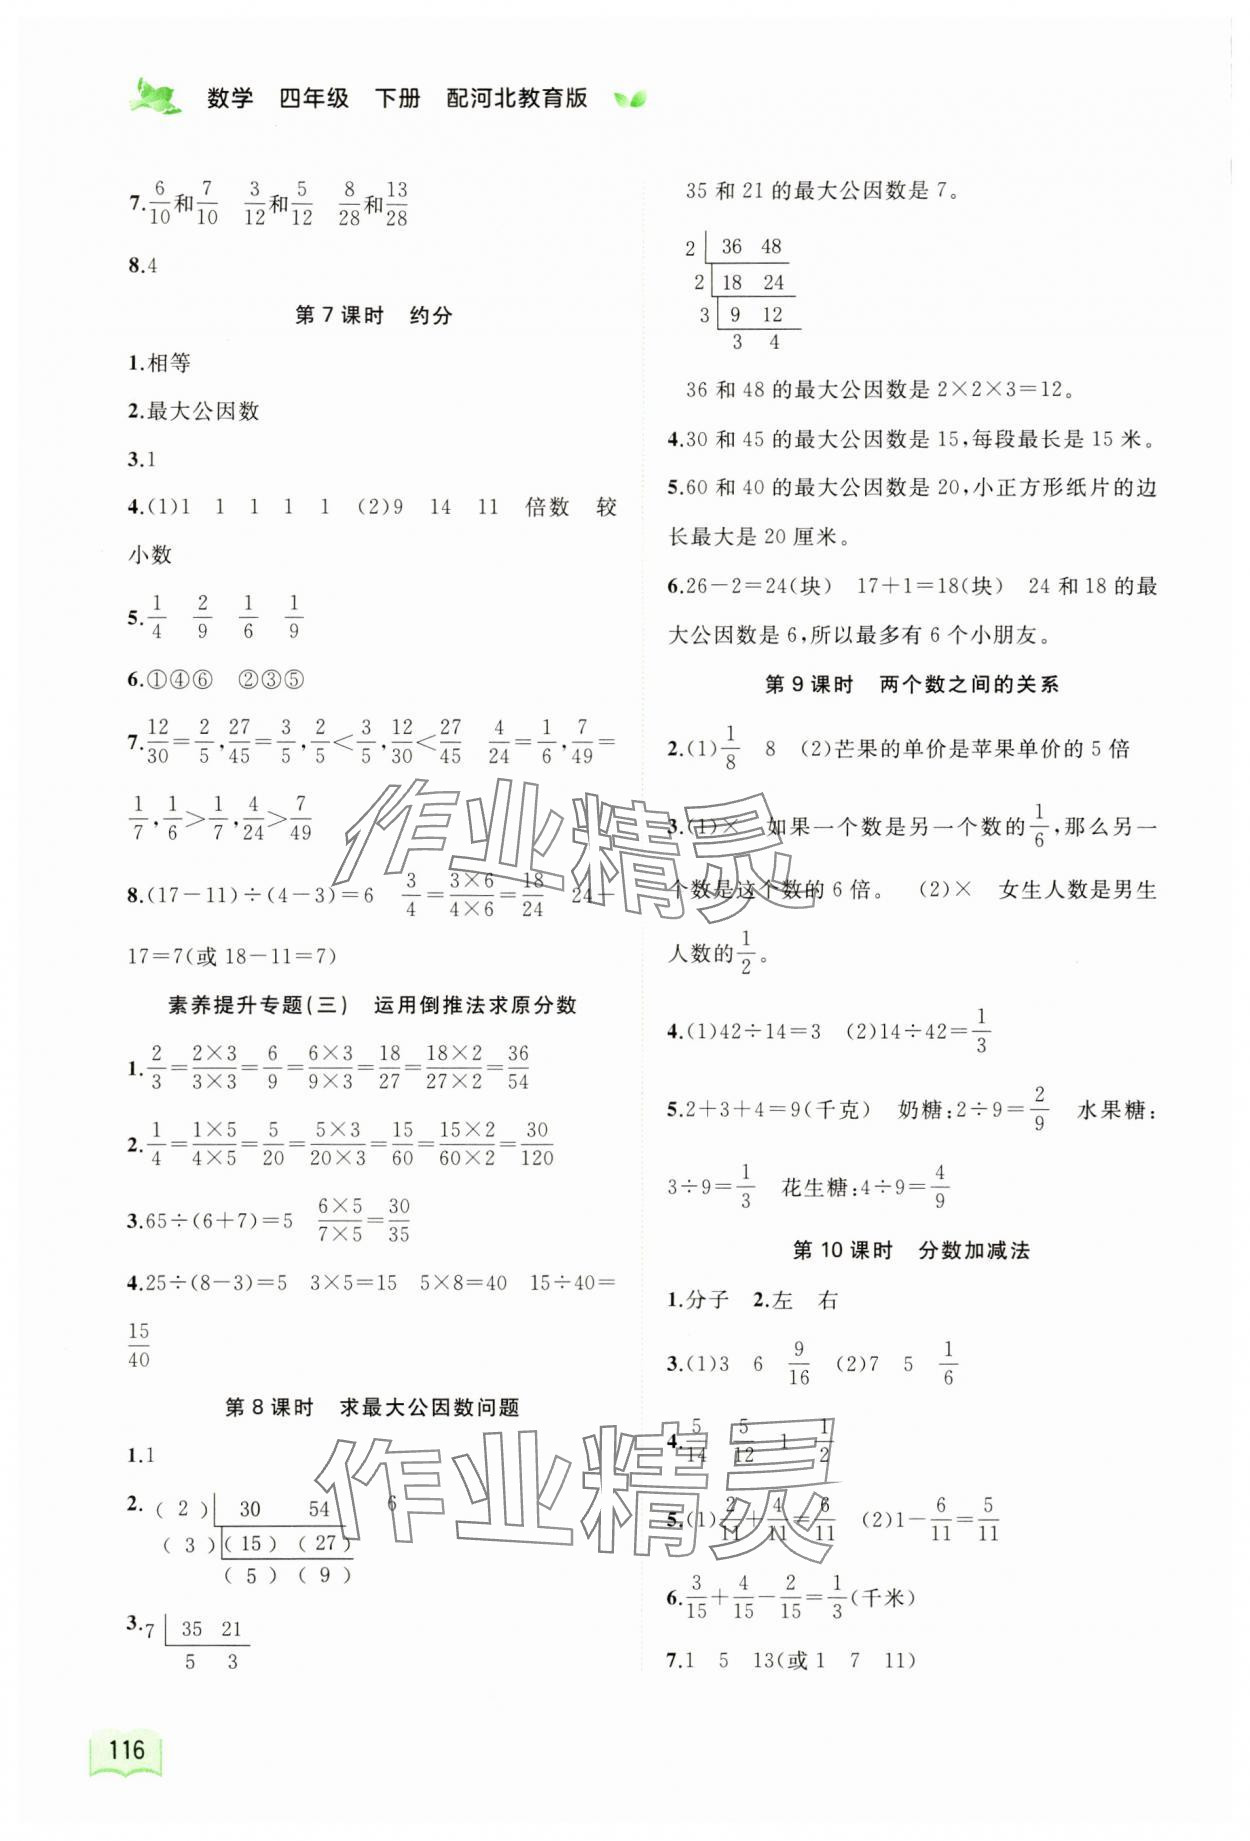 数学 四年级 下册 配河北教育版
7.6/10和7/10 3/12和5/12 8/28和13/28
8.4
第 7 课时 约分
1.相等
2.最大公因数
3.1
4.(1)1 1 1 1 1 (2)9 14 11 倍数 较
小数
5.1/4 2/9 1/6 1/9
6.①④⑥ ②③⑤
7.12/30=2/5,27/45=3/5,2/5<3/5,12/30<27/45 4/24=1/6,7/49=
1/7,1/6>1/7,4/24>7/49
8.(17-11)÷(4-3)=6 3/4=3×6/4×6=18/24 24-
17=7(或 18-11=7)
素养提升专题(三) 运用倒推法求原分数
1.2/3=2×3/3×3=6/9=6×3/9×3=18/27=18×2/27×2=36/54
2.1/4=1×5/4×5=5/20=5×3/20×3=15/60=15×2/60×2=30/120
3.65÷(6+7)=5 6×5/7×5=30/35
4.25÷(8-3)=5 3×5=15 5×8=40 15÷40=
15/40
第 8 课时 求最大公因数问题
1.1
2. (2) 30 54 6
(3) (15) (27)
(5) (9)
3. 7 35 21
5 3
35 和 21 的最大公因数是 7。
2 36 48
2 18 24
3 9 12
3 4
36 和 48 的最大公因数是 2×2×3=12。
4.30 和 45 的最大公因数是 15,每段最长是 15 米。
5.60 和 40 的最大公因数是 20,小正方形纸片的边
长最大是 20 厘米。
6.26-2=24(块) 17+1=18(块) 24 和 18 的最
大公因数是 6,所以最多有 6 个小朋友。
第 9 课时 两个数之间的关系
2.(1)1/8 8 (2)芒果的单价是苹果单价的 5 倍
3.(1)× 如果一个数是另一个数的1/6,那么另一
个数是这个数的 6 倍。 (2)× 女生人数是男生
人数的1/2。
4.(1)42÷14=3 (2)14÷42=1/3
5.2+3+4=9(千克) 奶糖:2÷9=2/9 水果糖:
3÷9=1/3 花生糖:4÷9=4/9
第 10 课时 分数加减法
1.分子 2.左 右
3.(1)3 6 9/16 (2)7 5 1/6
4.5/14 5/12 1 1/2
5.(1)2/11+4/11=6/11 (2)1-6/11=5/11
6.3/15+4/15-2/15=1/3(千米)
7.1 5 13(或 1 7 11)
116
作业精灵
作业精灵